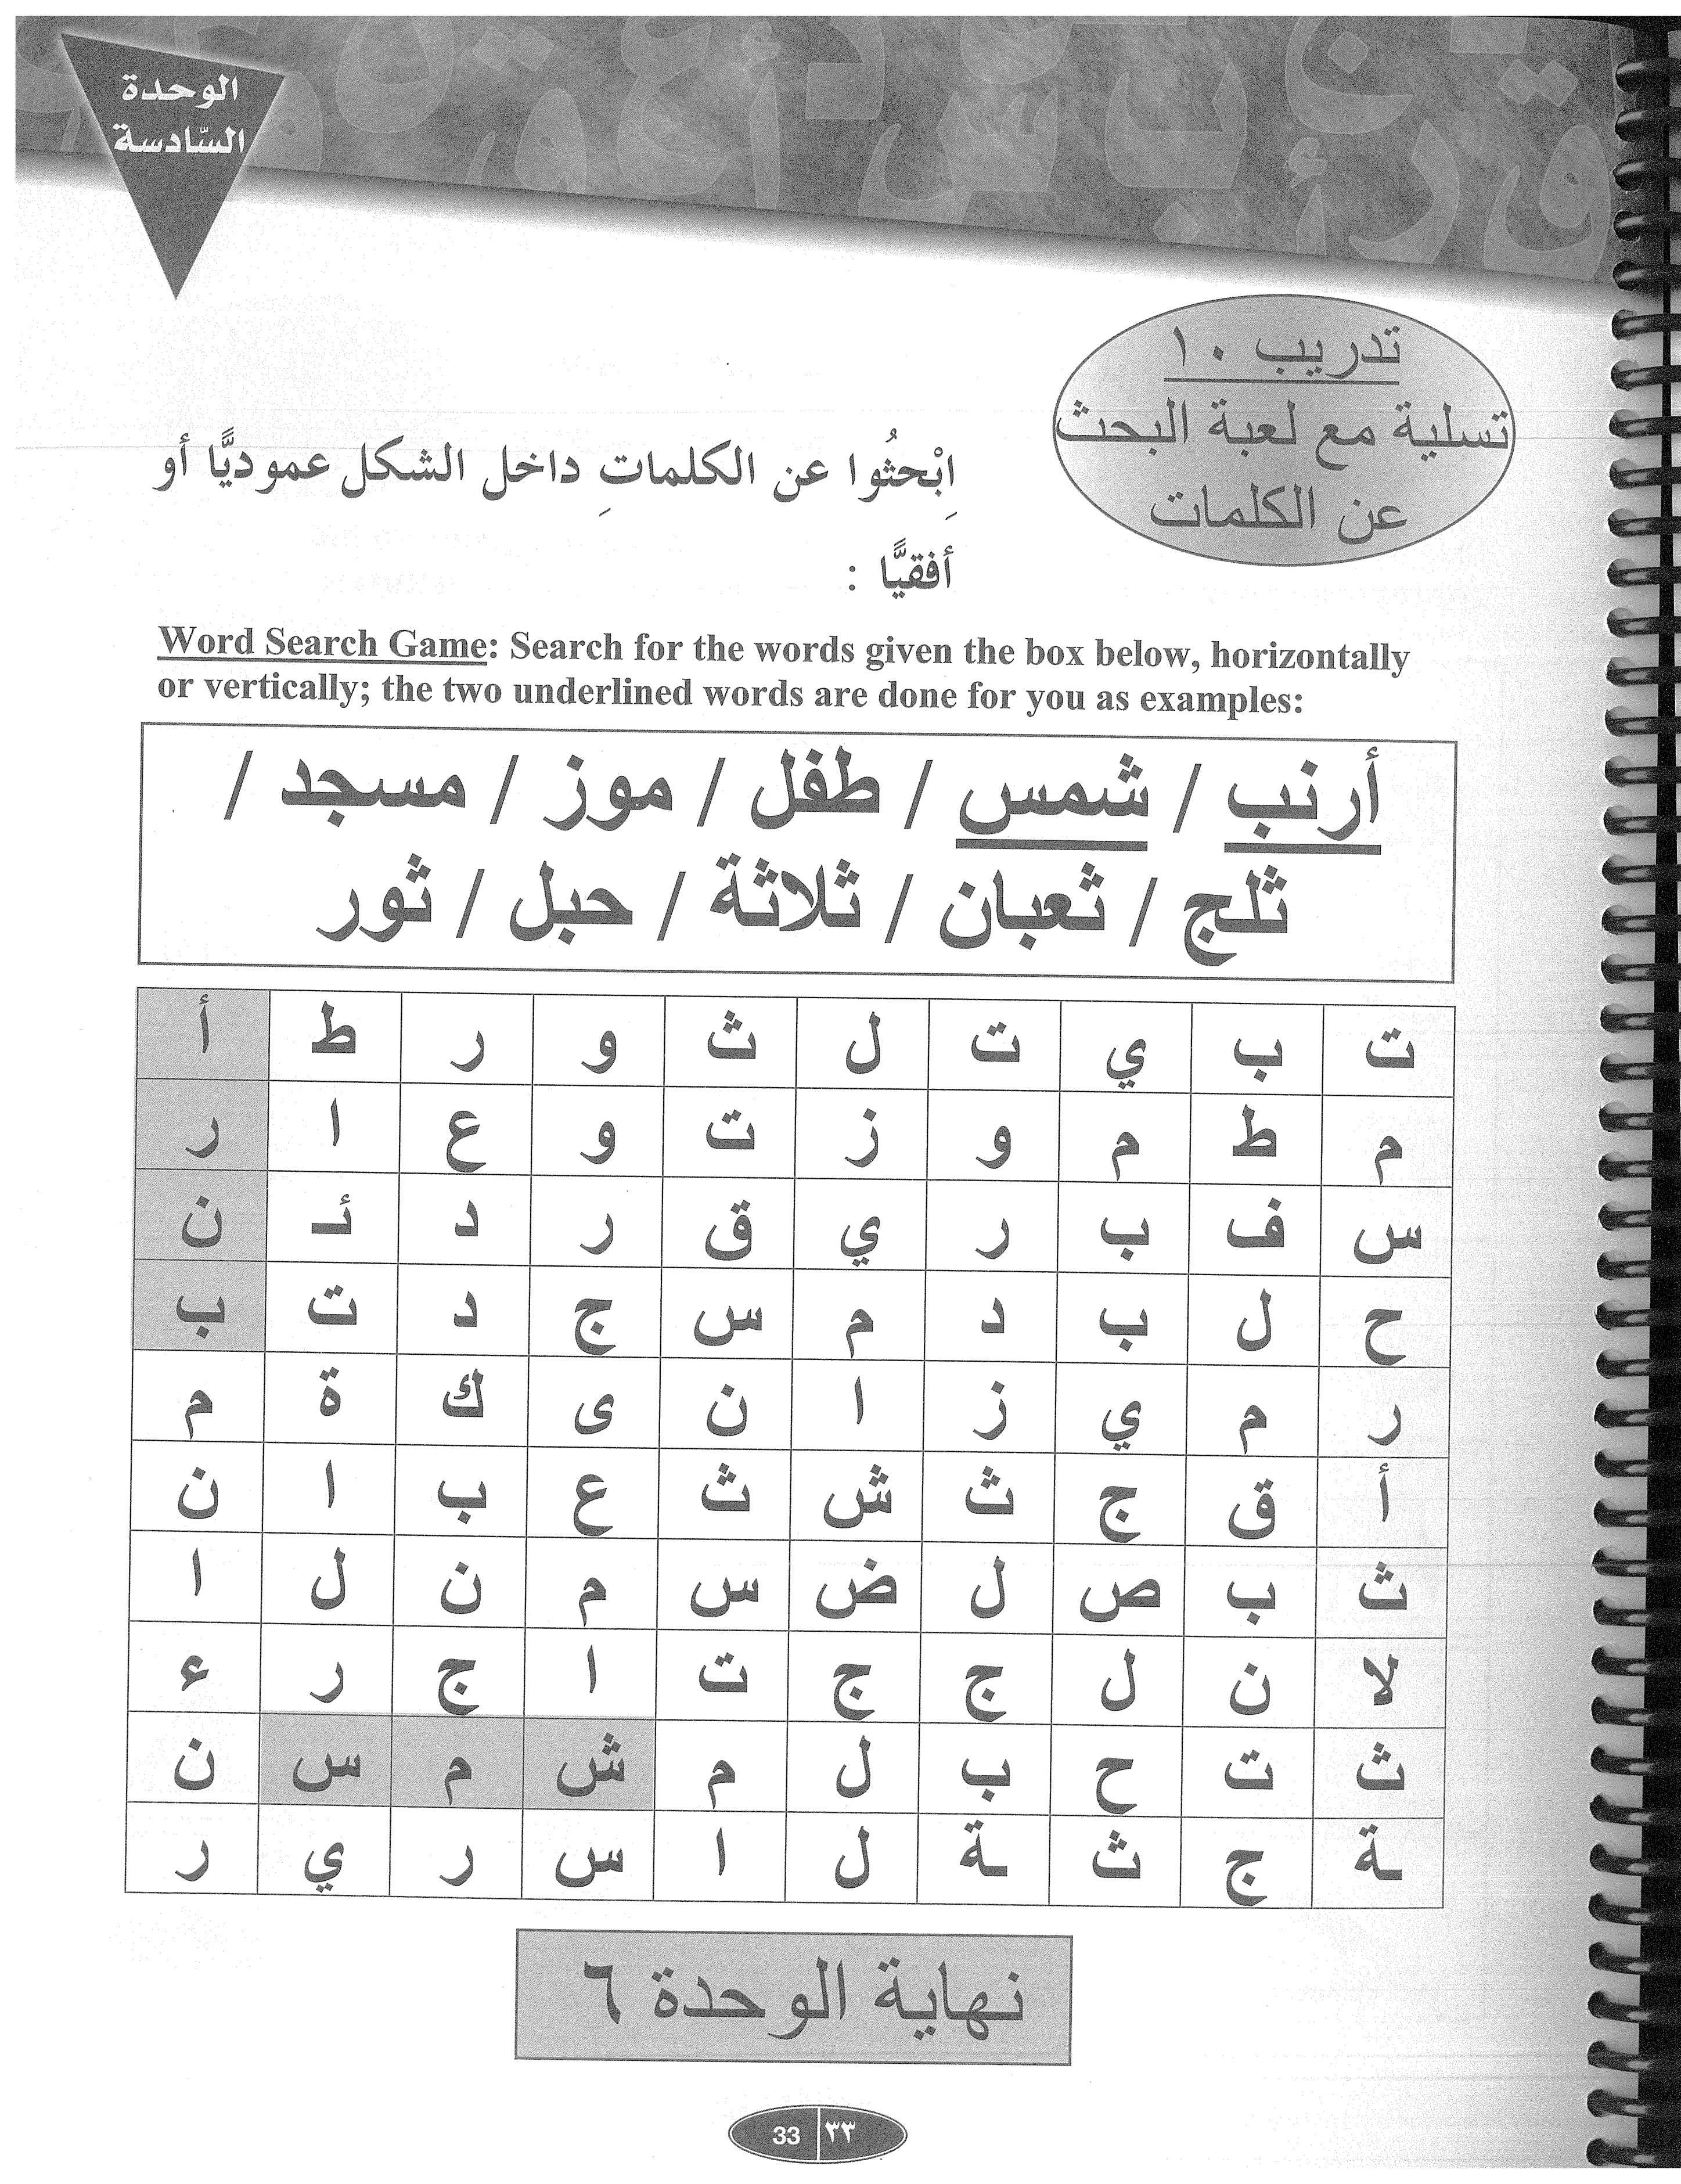 الوحدة
السّادسة
تدريب ١٠
تسلية مع لعبة البحث
عن الكلمات
اِبْحثُوا عن الكلماتِ داخل الشكل عموديًّا أو
أفقيًّا :
Word Search Game: Search for the words given the box below, horizontally
or vertically; the two underlined words are done for you as examples:
أرنب / شمس / طفل / موز / مسجد /
ثلج / ثعبان / ثلاثة / حبل / ثور
ت ب ي ت ل ث و ر ط أ
م ط م و ز ت و ع ا ر
س ف ب ر ي ق ر د ئـ ن
ح ل ب د م س ج د ت ب
ر م ي ز ا ن ى ك ة م
أ ق ج ث ش ث ع ب ا ن
ث ب ص ل ض س م ن ل ا
لا ن ل ج ج ت ا ج ر ء
ث ت ح ب ل م ش م س ن
ـة ج ث ـة ل ا س ر ي ر
نهاية الوحدة ٦
33 ٣٣